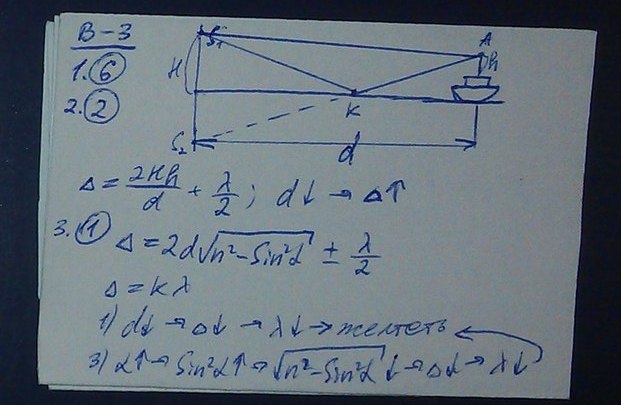 В-3
1. 6
2. 2
S₁
A
H
h
K
S₂
d
Δ = 2Hh/d + λ/2; d↓ → Δ↑
3. 1 Δ = 2d√(n² - Sin²α) ± λ/2
Δ = kλ
1) d↓ → Δ↓ → λ↓ → желтеть
3) α↑ → Sin²α↑ → √(n² - Sin²α)↓ → Δ↓ → λ↓